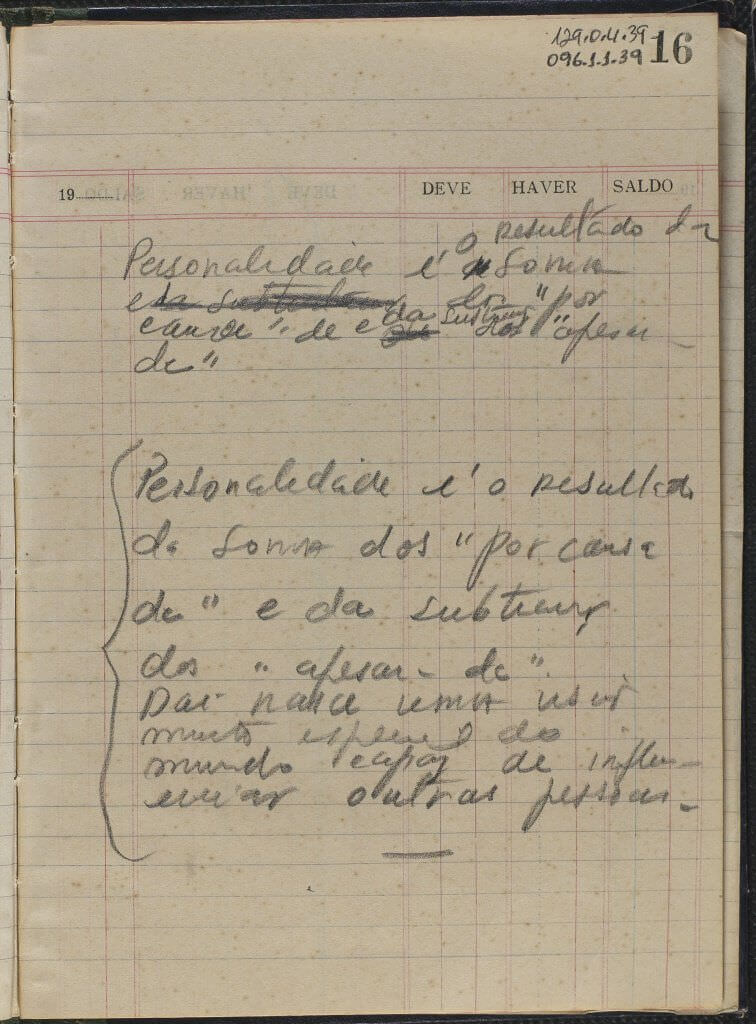 129.0.4.39
096.1.1.39 16
19 DEVE HAVER SALDO
o resultado da
Personalidade é a soma
"por
causa" de e da subtraç dos "apesar
de"
Personalidade é o resultado
da soma dos "por causa
de" e da subtraç
dos "apesar de".
Daí nasce uma visão
muito especial do
mundo capaz de influ-
enciar outras pessoas.